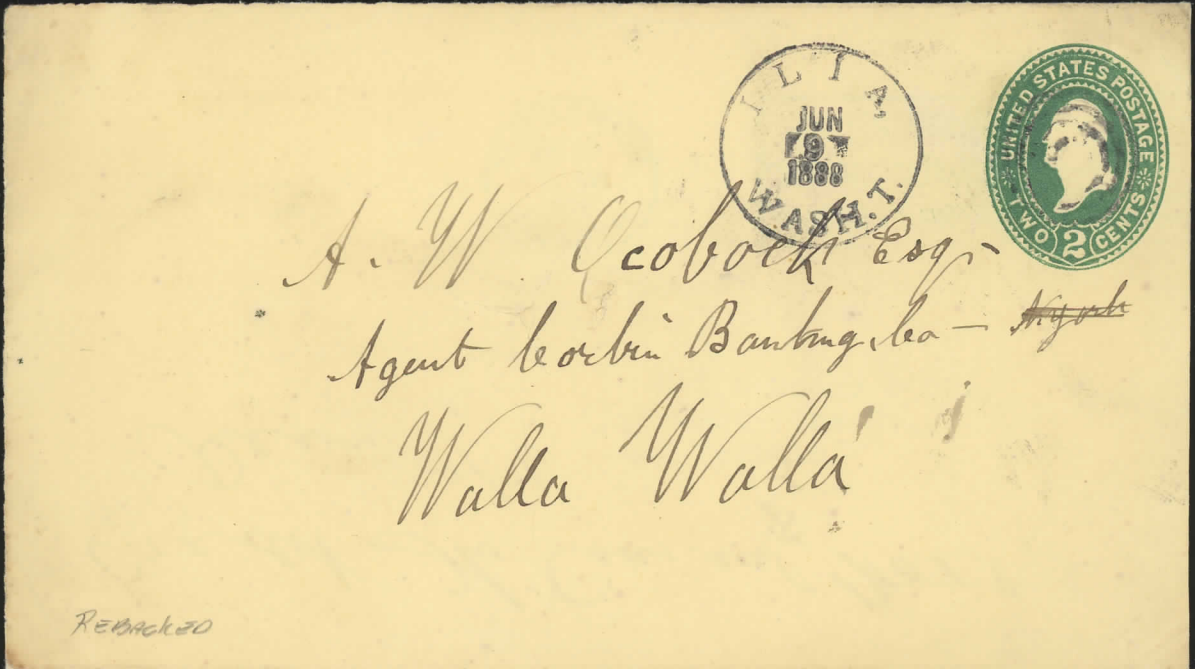 ILIA,
JUN
9
1888
WASH.T.
UNITED STATES POSTAGE
TWO 2 CENTS
A. W. Ocobock Esq-
Agent Corbin Banking Co - N York
Walla Walla
REBACKED